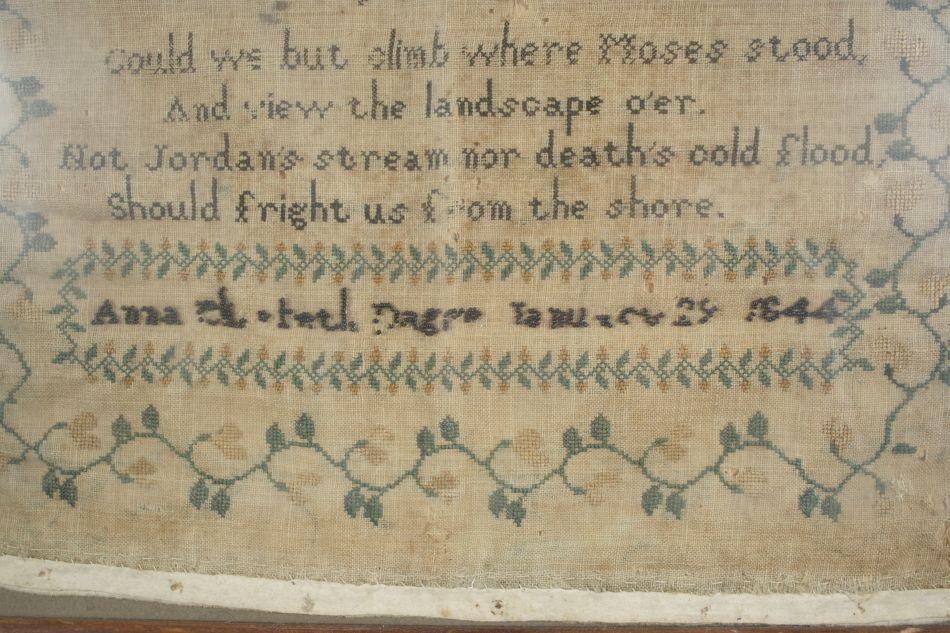 Could we but climb where Moses stood,
And view the landscape o'er.
Not Jordan's stream nor death's cold flood,
Should fright us from the shore.
Anna Elizabeth January 1844